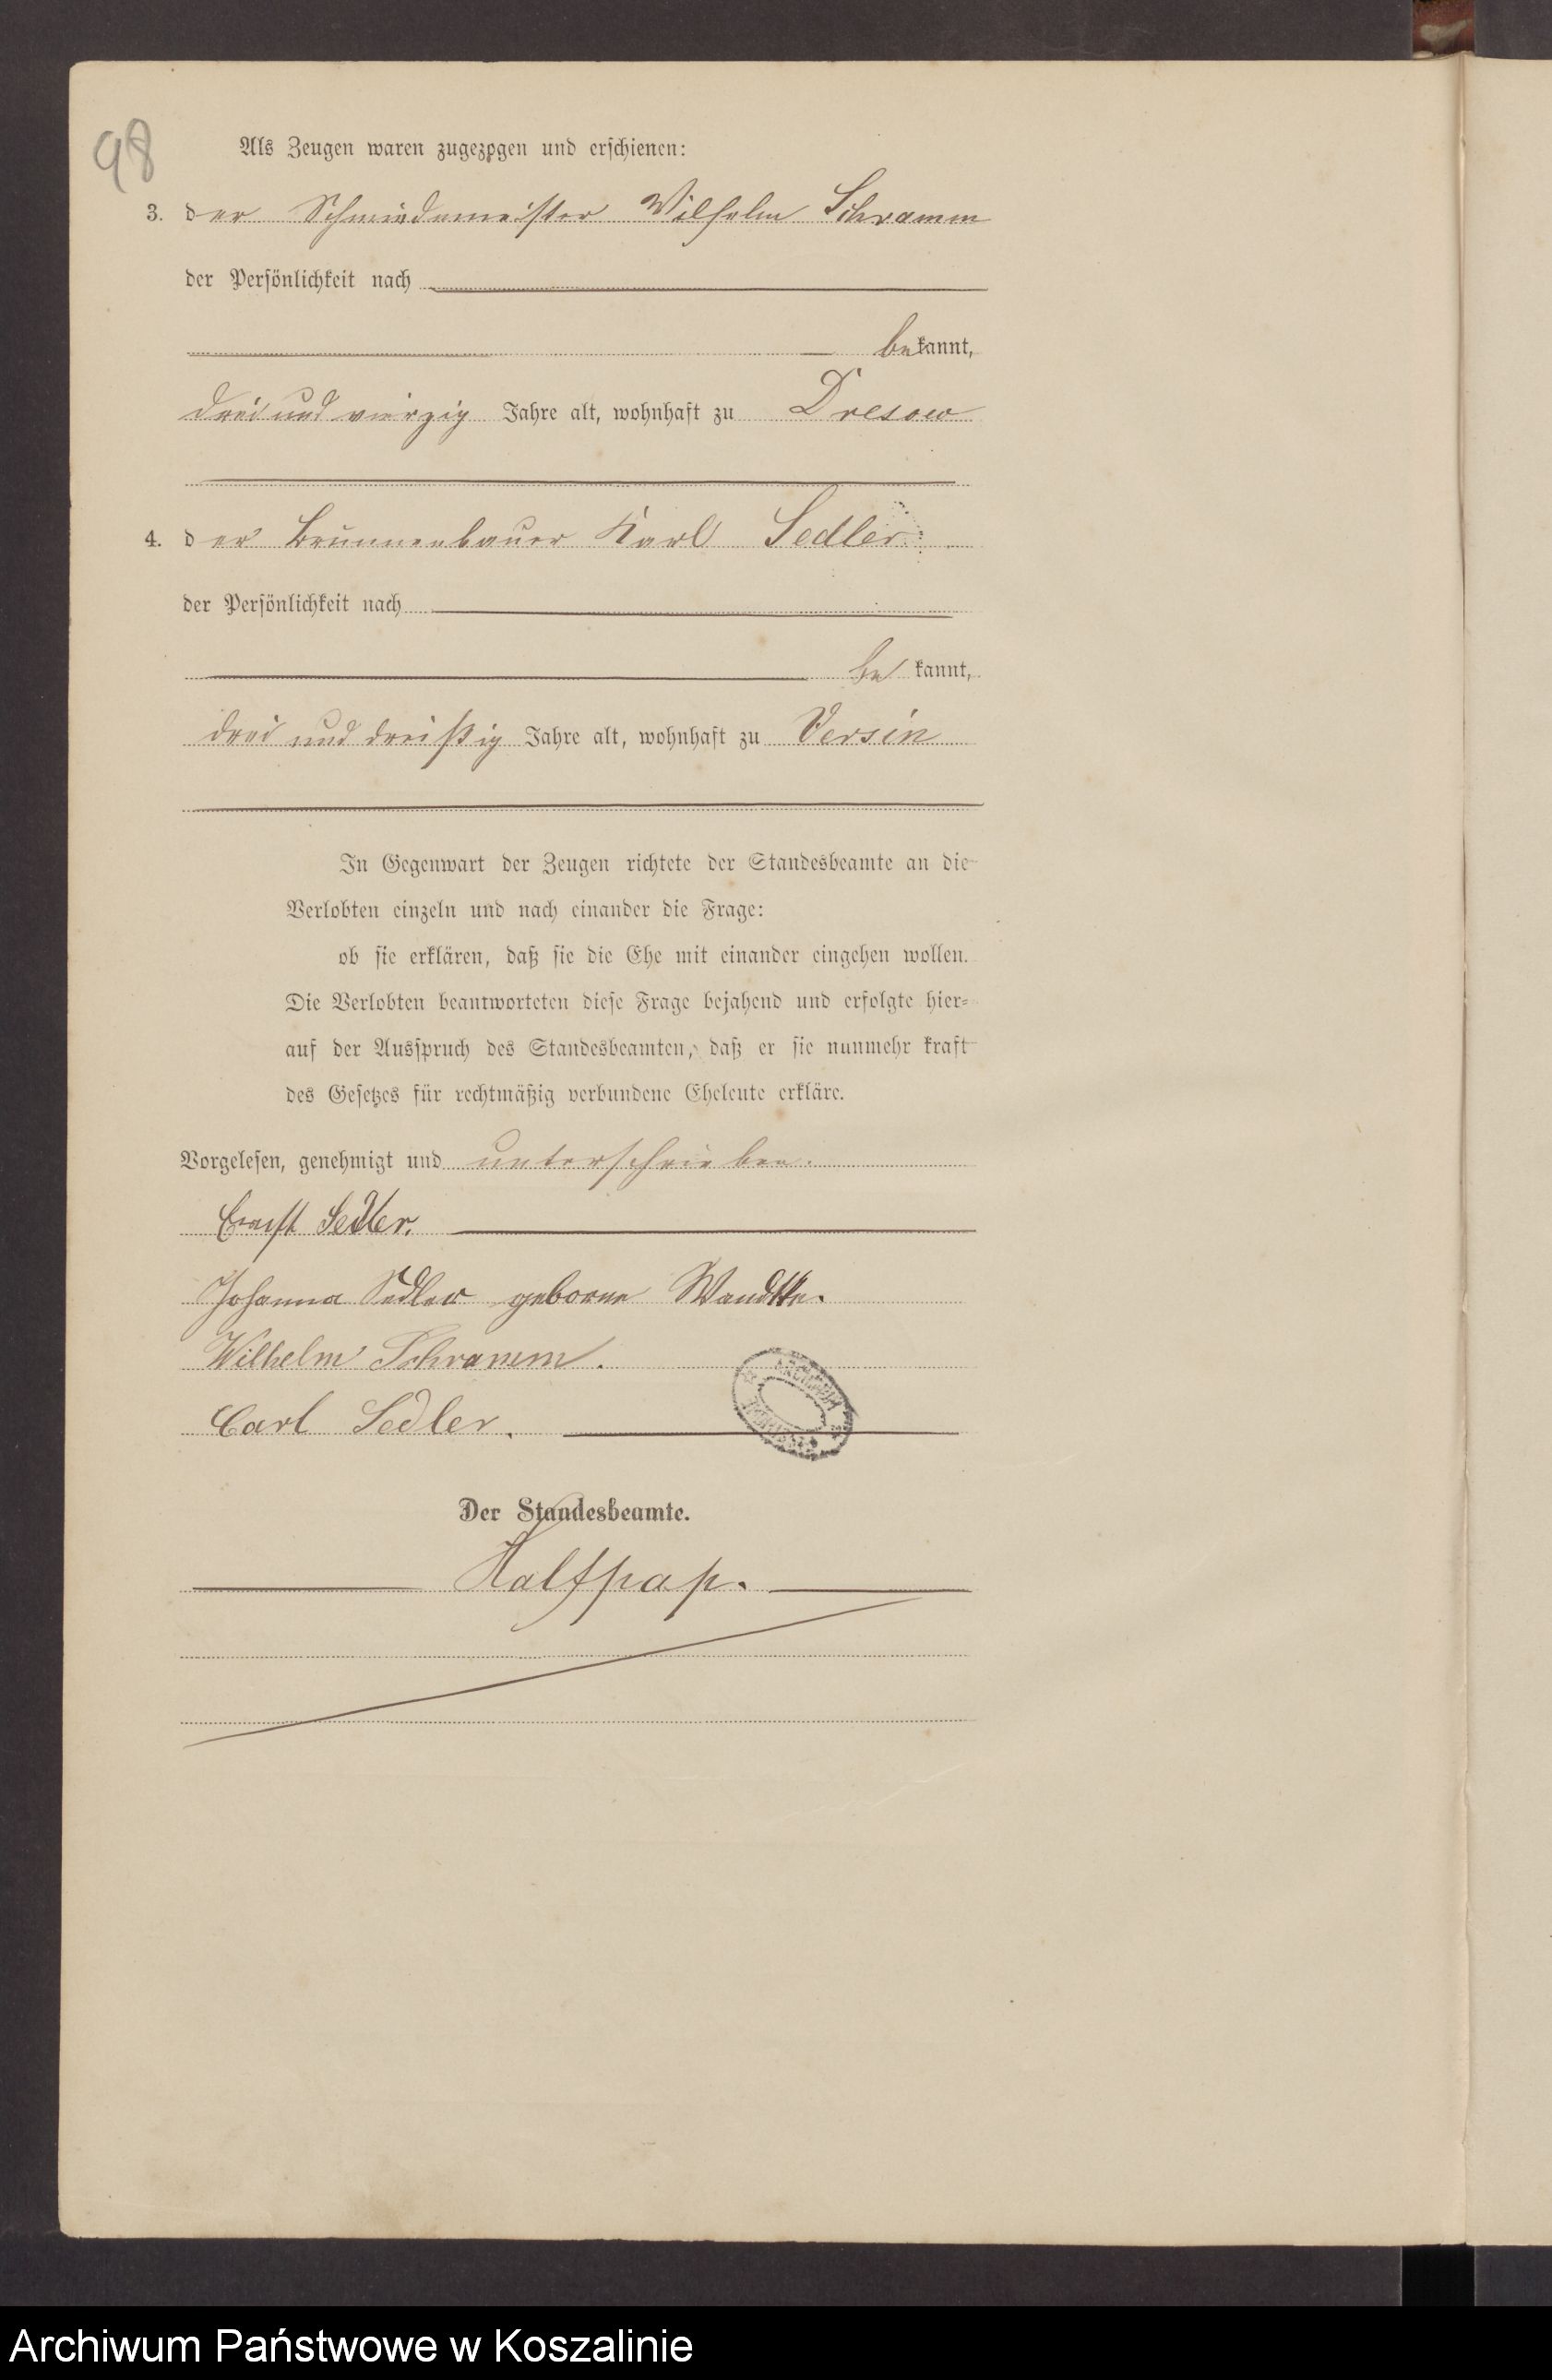 98
Als Zeugen waren zugezogen und erschienen:
3. der Schmiedemeister Wilhelm Schramm
der Persönlichkeit nach
bekannt,
drei und vierzig Jahre alt, wohnhaft zu Dresow
4. der Brunnenbauer Karl Sedler
der Persönlichkeit nach
be kannt,
drei und dreißig Jahre alt, wohnhaft zu Versin
In Gegenwart der Zeugen richtete der Standesbeamte an die
Verlobten einzeln und nach einander die Frage:
ob sie erklären, daß sie die Ehe mit einander eingehen wollen.
Die Verlobten beantworteten diese Frage bejahend und erfolgte hier-
auf der Ausspruch des Standesbeamten, daß er sie nunmehr kraft
des Gesetzes für rechtmäßig verbundene Eheleute erkläre.
Vorgelesen, genehmigt und unterschrieben.
Ernst Sedler.
Johanna Sedler geborne Wandtke.
Wilhelm Schramm.
Carl Sedler.
Der Standesbeamte.
Halfpap.
Archiwum Państwowe w Koszalinie